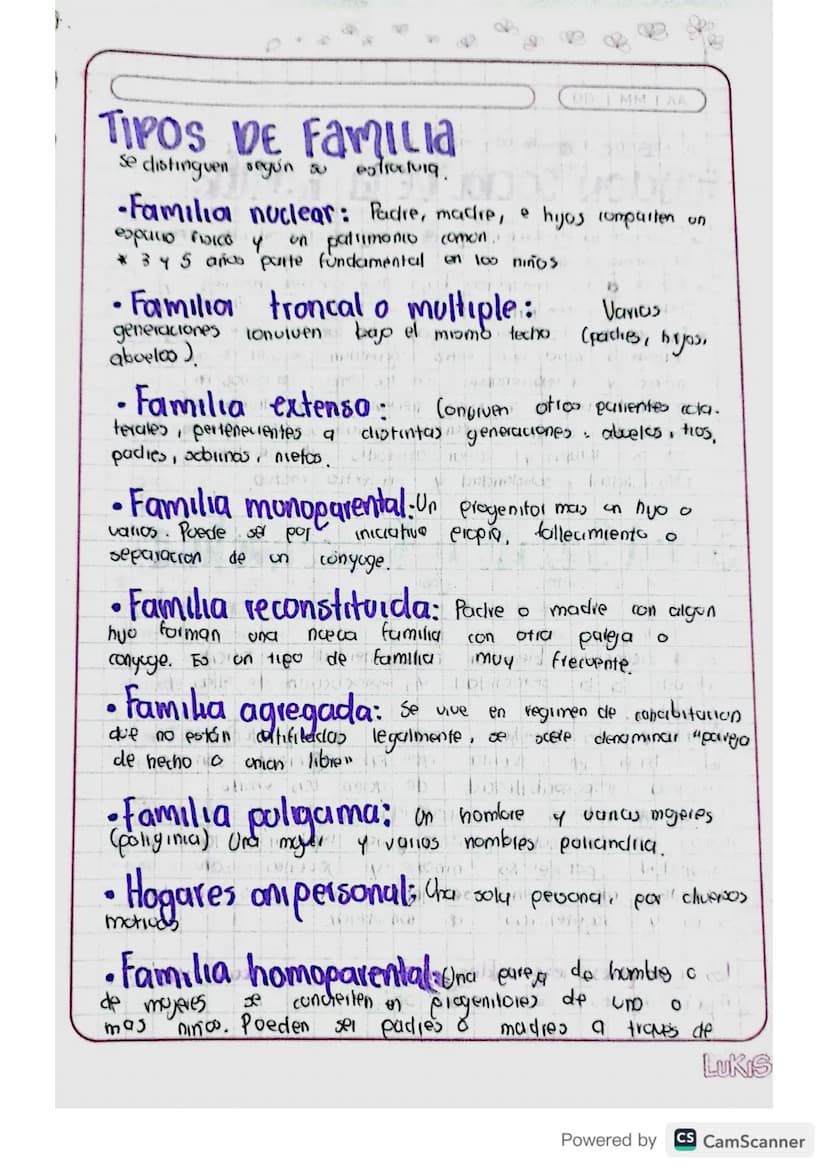 DD | MM | AA
TIPOS DE FAMILIA
se distinguen según su estructura.
•Familia nuclear: Padre, madre, e hijos comparten un
espacio fisico y un patrimonio comun.
* 3 y 5 años parte fundamental en los niños
• Familia troncal o multiple: Varias
generaciones conviven bajo el mismo techo (padres, hijos,
abuelos).
• Familia extenso: Conviven otros parientes cola-
terales, pertenecientes a distintas generaciones. abuelos, tios,
padres, sobrinos, nietos.
• Familia monoparental: Un progenitor mas un hijo o
varios. Puede ser por iniciativa propia, fallecimiento o
separacion de un conyuge.
• Familia reconstituida: Padre o madre con algun
hijo forman una nueva familia con otra pareja o
conyuge. Es un tipo de familia muy frecuente.
• Familia agregada: Se vive en regimen de cohabitacion
que no están legalmente, se suele denominar "pareja
de hecho o union libre"
• Familia poligama: Un hombre y varias mujeres
(poliginia) Una mujer y varios hombres poliandria.
• Hogares unipersonal; Una sola persona, por diversos
motivos
• Familia homoparental: Una pareja de hombres o
de mujeres se convierten en progenitores de uno o
mas niños. Pueden ser padres o madres a través de
LUKIS
Powered by CS CamScanner